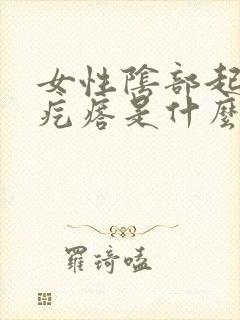 女性陰部起
疙瘩是什麼
羅琦嗑